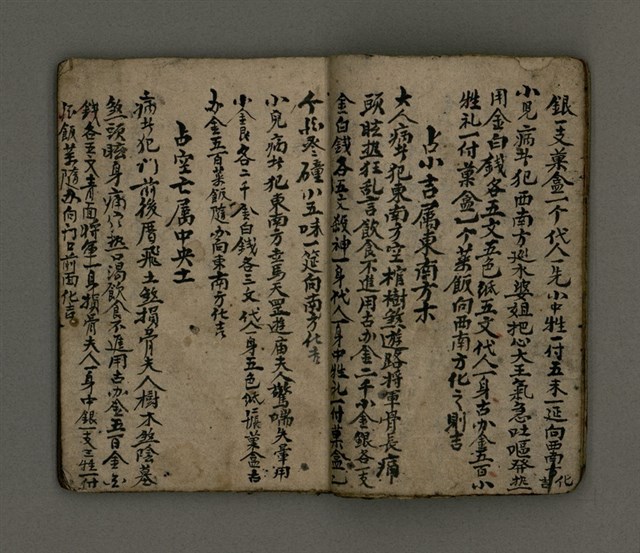 銀一支菓盒一个代人一先小中牲一付五末一延向西南方化吉
小児病井犯西南方逥水婆姐把心大王氣急吐嘔發熱
用金白錢各五文五色低五文代人一身古办金五百小
牲礼一付菓盒一个菜飯向西南方化之則吉
占小吉属東南方木
大人病井犯東南方空棺樹煞逰路將軍骨長痛
頭眩熱狂乱言飲食不進用古办金二千小金銀各一支
金白錢各五文 神一身代人一身中牲礼一付菓盒
碰小五味一延向南方化吉
小兒病井犯東南方立馬天罡逰庙夫人驚喘失暈用
小金艮各二千金白錢各三文代人一身五色低 菓盒古
办金五百菜飯隨办向東南方化吉
占空亡属中央土
病井犯门前後厝飛土煞損骨夫人樹木煞陰墓
煞頭眩身痛 熱口渴飲食不進用古办金五百金白
錢各三文青面將軍一身損骨夫人一身中銀一支三牲一付
飯菜隨办向门口前面化吉